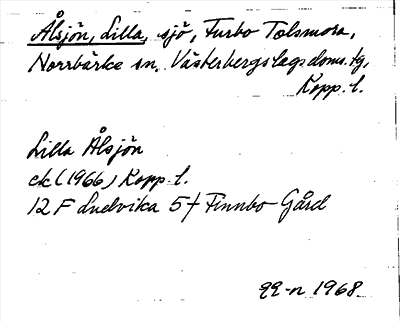 Ålsjön, Lilla, sjö, Furbo Tolsmora,
Norrbärke sn. Västerbergslags doms. tg,
Kopp. l.
Lilla Ålsjön
ek (1966) Kopp. l.
12 F Ludvika 5f Finnbo Gård
1968